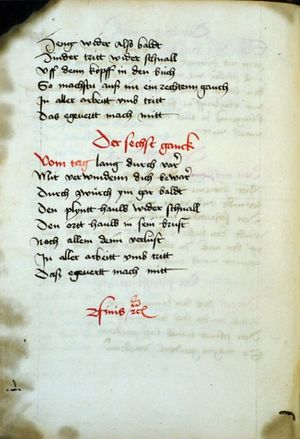 Heng wider also baldt
Inder tritt wider schnall
Vff denn kopff in den bůch
So machstu auß im ein rechtenn gauch
In aller arbeitt vmb tritt
Das egevertt mach mitt
Der sechst ganck
Vom tag lang durch var
Mit verwendenn dich bewar
Durch würch ym gar baldt
Den plyntt hauw wider schnall
Den ortt hauw in sein brust
Noch allem denn verlust
In aller arbeitt vmb tritt
Daß egevertt mach mitt
Finis